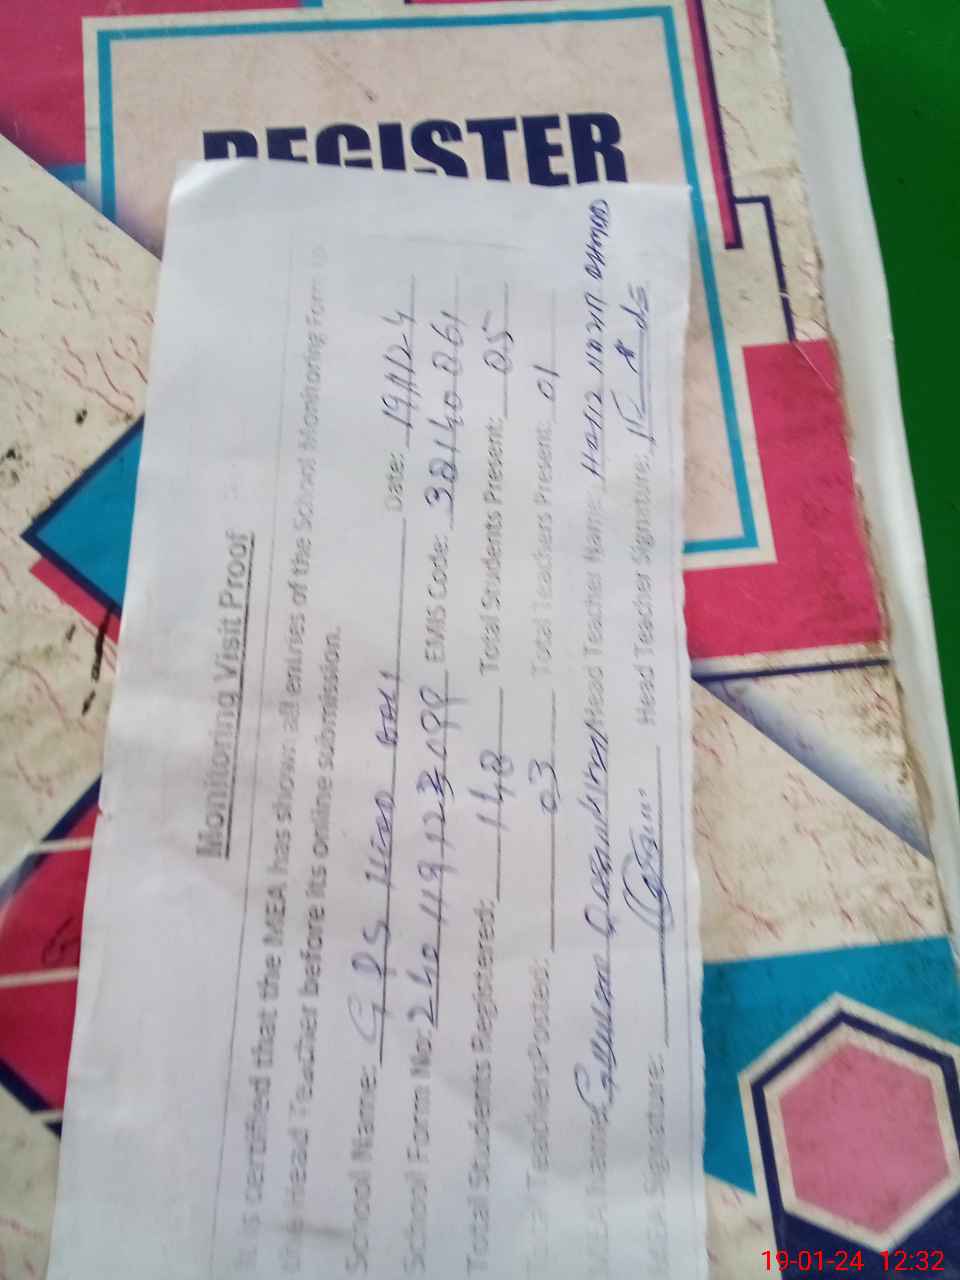 REGISTER
Monitoring Visit Proof
is certified that the MEA has shown all entries of the School Monitoring Form to
the Head Teacher before its online submission.
School Name: GPS Date: 19/1/24
School Form No: 240119123199 EMIS Code: 38140061
Total Students Registered: 148 Total Students Present: 05
Teachers Posted: 03 Total Teachers Present: 01
MEA Name: Head Teacher Name:
MEA Signature: Head Teacher Signature:
19-01-24 12:32